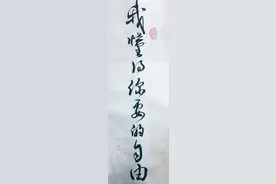 我懂得你要的自由